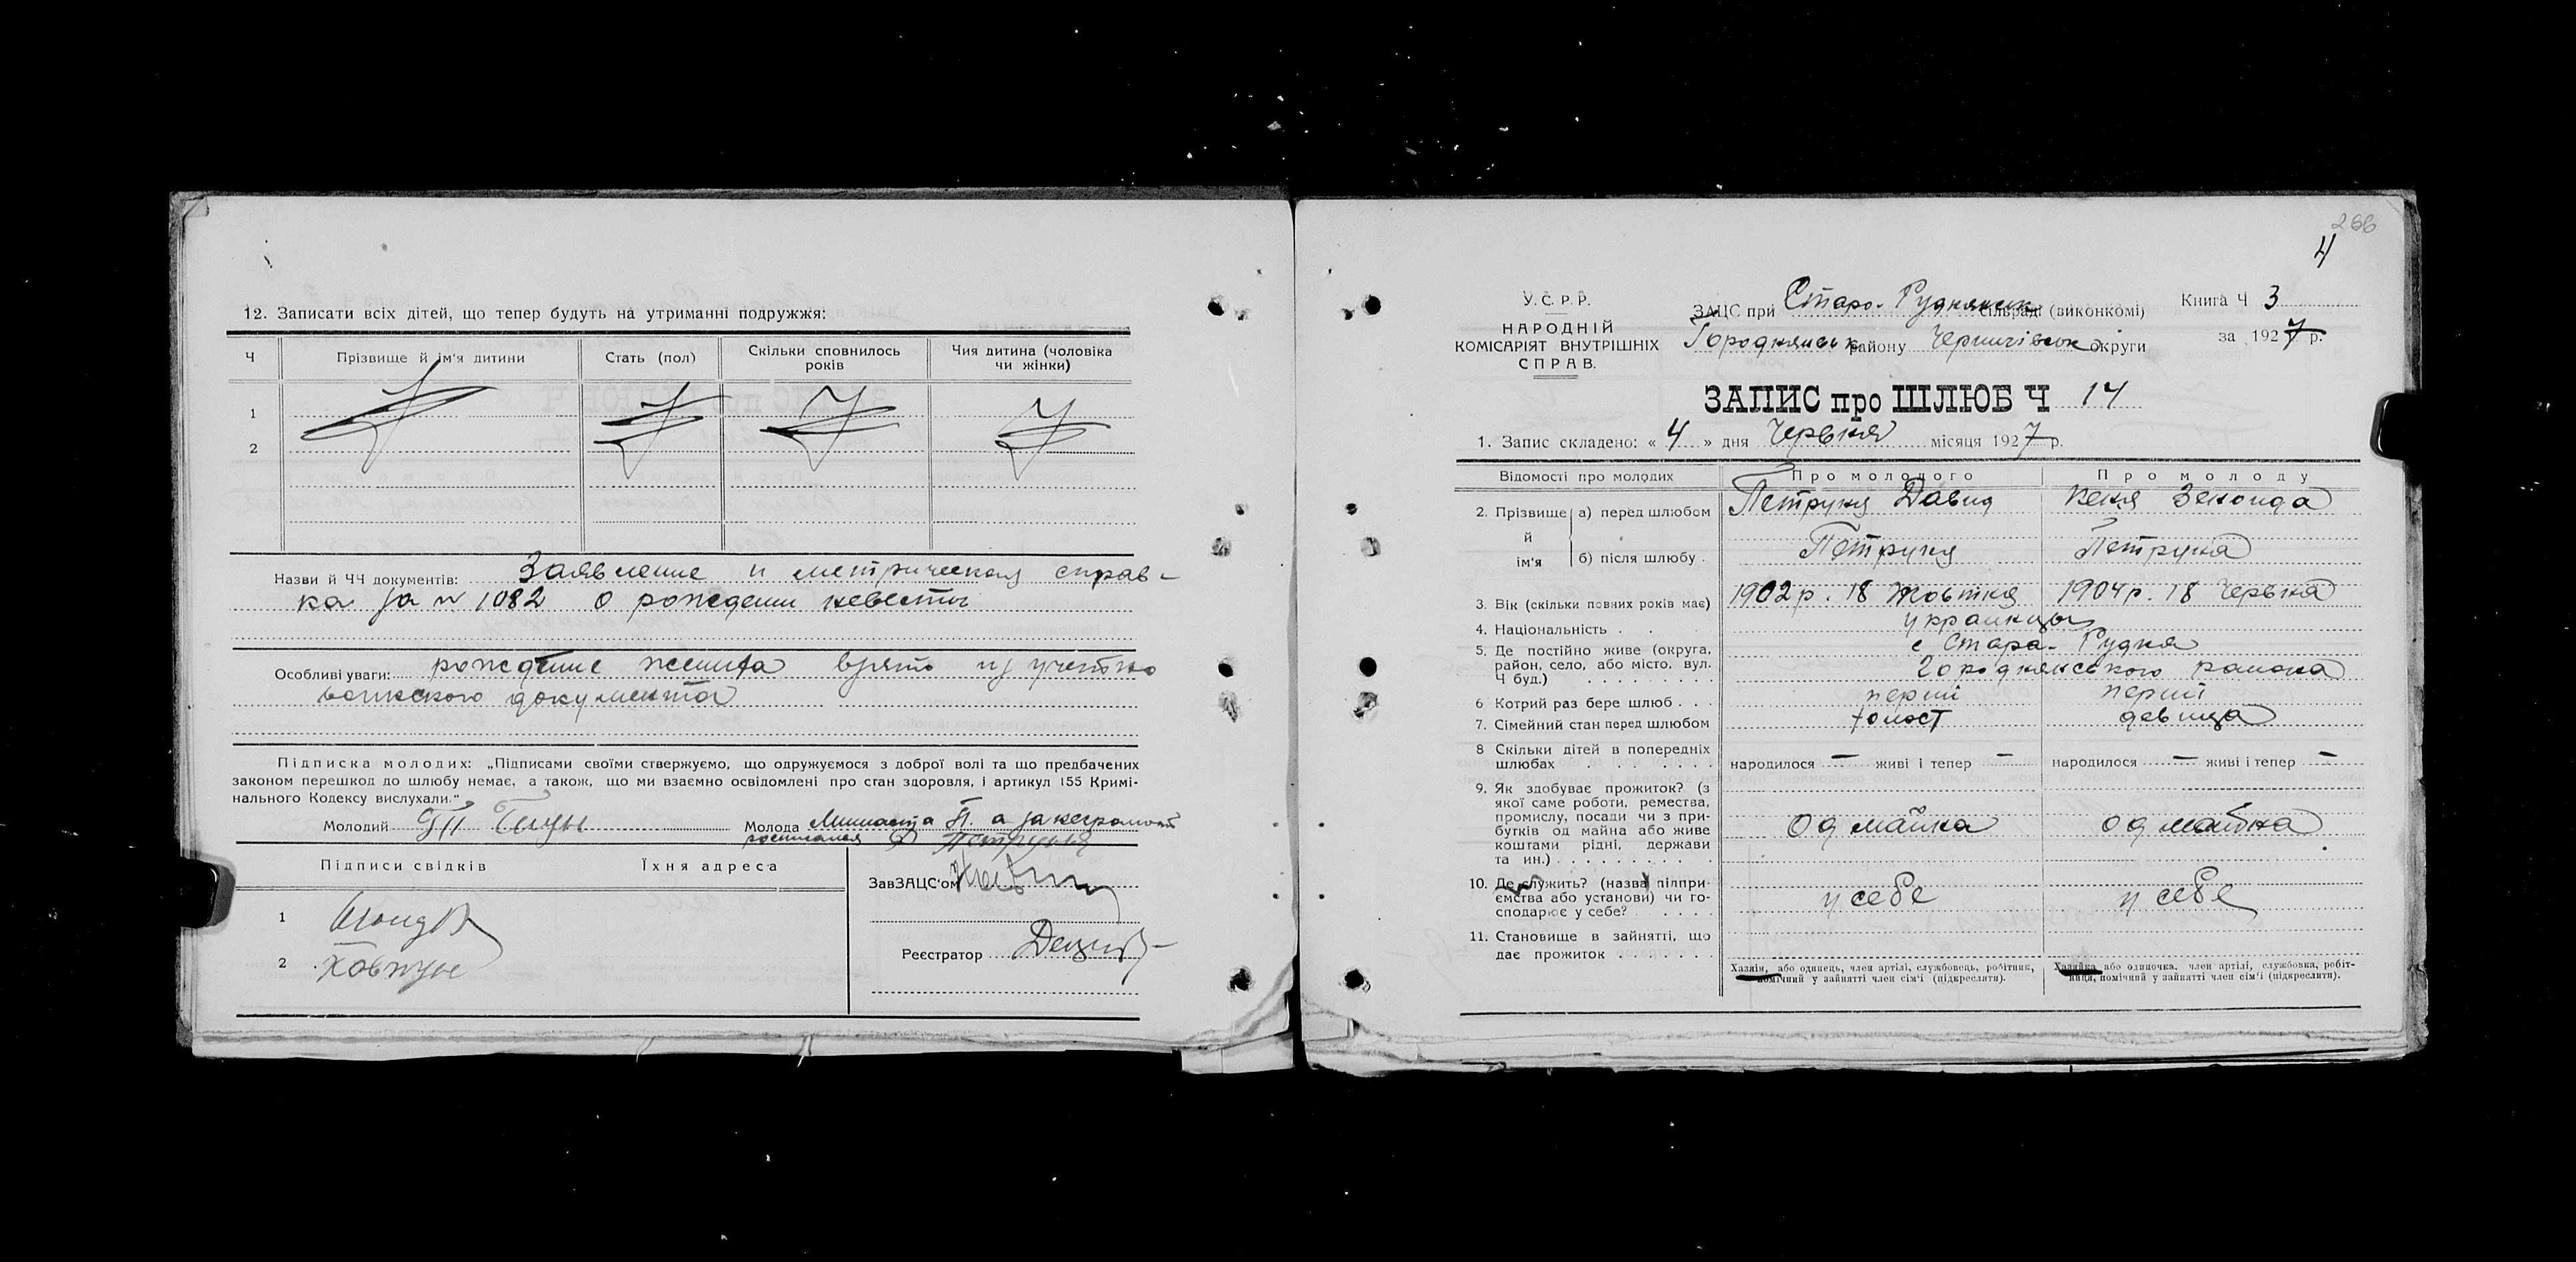 12. Записати всіх дітей, що тепер будуть на утриманні подружжя:
Ч
Прізвище й ім'я дитини
Стать (пол)
Скільки сповнилось
років
Чия дитина (чоловіка
чи жінки)
1
2
Назви й ЧЧ документів: Заявление и метрическая справ-
ка за № 1082 о рождении невесты
Особливі уваги: рождение жениха взято из учетно
воинского документа
Підписка молодих: „Підписами своїми ствержуємо, що одружуємося з доброї волі та що предбачених
законом перешкод до шлюбу немає, а також, що ми взаємно освідомлені про стан здоровля, і артикул 155 Кримі-
нального Кодексу вислухали."
Молодий
Молода П. а за неграмотн
росписался Петруня
Підписи свідків
Їхня адреса
1
2 Ковтун
ЗавЗАЦС'ом
Реєстратор
266
4
У. С. Р. Р.
НАРОДНІЙ
КОМІСАРІЯТ ВНУТРІШНІХ
СПРАВ.
ЗАЦС при Старо-Руднянськ сільраді (виконкомі)
Городнянськ району Чернигівськ округи
Книга Ч 3
за 1927 р.
ЗАПИС про ШЛЮБ Ч 14
1. Запис складено: « 4 » дня Червня місяця 1927 р.
Відомості про молодих
Про молодого
Про молоду
2. Прізвище й ім'я
а) перед шлюбом Петруня Давид
б) після шлюбу . Петруня Петруня
3. Вік (скільки повних років має) 1902 р. 18 Жовтня 1904 р. 18 Червня
4. Національність . . украинцы
5. Де постійно живе (округа, с Стара-Рудня
район, село, або місто, вул. Городнянського района
Ч буд.) . . . . . . . . .
6 Котрий раз бере шлюб . . . перши перши
7. Сімейний стан перед шлюбом холост девица
8 Скільки дітей в попередніх
шлюбах . . . . . . . народилося — живі і тепер — народилося — живі і тепер —
9. Як здобуває прожиток? (з
якої саме роботи, ремества,
промислу, посади чи з при-
бутків од майна або живе од майна од майна
коштами рідні, держави
та ин.) . . . . . . . . .
10. Де служить? (назва підпри-
ємства або установи) чи го- у себе у себе
сподарює у себе? . . . .
11. Становище в зайнятті, що
дає прожиток . . . . . . .
Хазяїн, або одинець, член артілі, службовець, робітник,
помічний у зайнятті член сім'ї (підкреслити).
Хазяйка або одиночка, член артілі, службовка, робіт-
ниця, помічний у зайнятті член сім'ї (підкреслити).